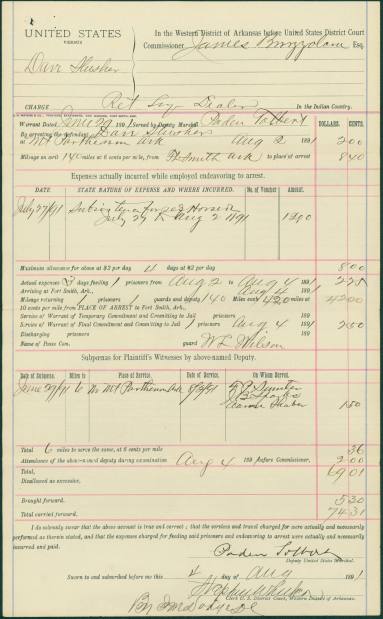 UNITED STATES
VERSUS
Dave Slusher
In the Western District of Arkansas before United States District Court
Commissioner, James Brizzolara Esq.
CHARGE Ret Liq Dealer in the Indian Country.
Warrant Dated June 29 1891 Served by Deputy Marshal Paden Tolbert DOLLARS. CENTS.
By arresting the defendant Dave Slusher
at Mt Parthenon Ark Aug 2 1891 2 00
Mileage on arrt 140 miles at 6 cents per mile, from Ft Smith Ark to place of arrest 8 40
Expenses actually incurred while employed endeavoring to arrest.
DATE. STATE NATURE OF EXPENSE AND WHERE INCURRED. No. of Voucher Amount.
July 27/91
July 27 to Aug 2 1891 12 00
Maximum allowance for above at $2 per day 4 days at $2 per day 8 00
Actual expenses 3 days feeding 1 prisoners from Aug 2 to Aug 4 1891 2 25
Arriving at Fort Smith, Ark., Aug 4 1891
Mileage returning 1 prisoners 1 guards and deputy 140 Miles each 420 miles at 42 00
10 cents per mile from PLACE OF ARREST to Fort Smith Ark.
Service of Warrant of Temporary Commitment and Committing to Jail prisoners
Service of Warrant of Final Commitment and Committing to Jail 1 prisoners Aug 4 1891 2 00
Discharging prisoners
Name of Posse Com. guard W L Wilson
Subpœnas for Plaintiff's Witnesses by above-named Deputy.
Date of Subpœna. Miles. Place of Service. Date of Service. On Whom Served.
June 29/91 6 Mt Parthenon Ark 8/2/91
1 50
Total 6 miles to serve the same, at 6 cents per mile 36
Attendance of the above-named deputy during examination Aug 4 1891 before Commissioner. 2 00
Total, 69 01
Disallowed as excessive.
Brought forward. 5 30
Total carried forward. 74 31
I do solemnly swear that the above account is true and correct; that the services and travel charged for were actually and necessarily
performed as therein stated, and that the expenses charged for feeding said prisoners and endeavoring to arrest were actually and necessarily
incurred and paid.
Paden Tolbert
Deputy United States Marshal.
Sworn to and subscribed before me this 4 day of Aug 1891
Stephen Wheeler
Clerk U. S. District Court, Western District of Arkansas.
By